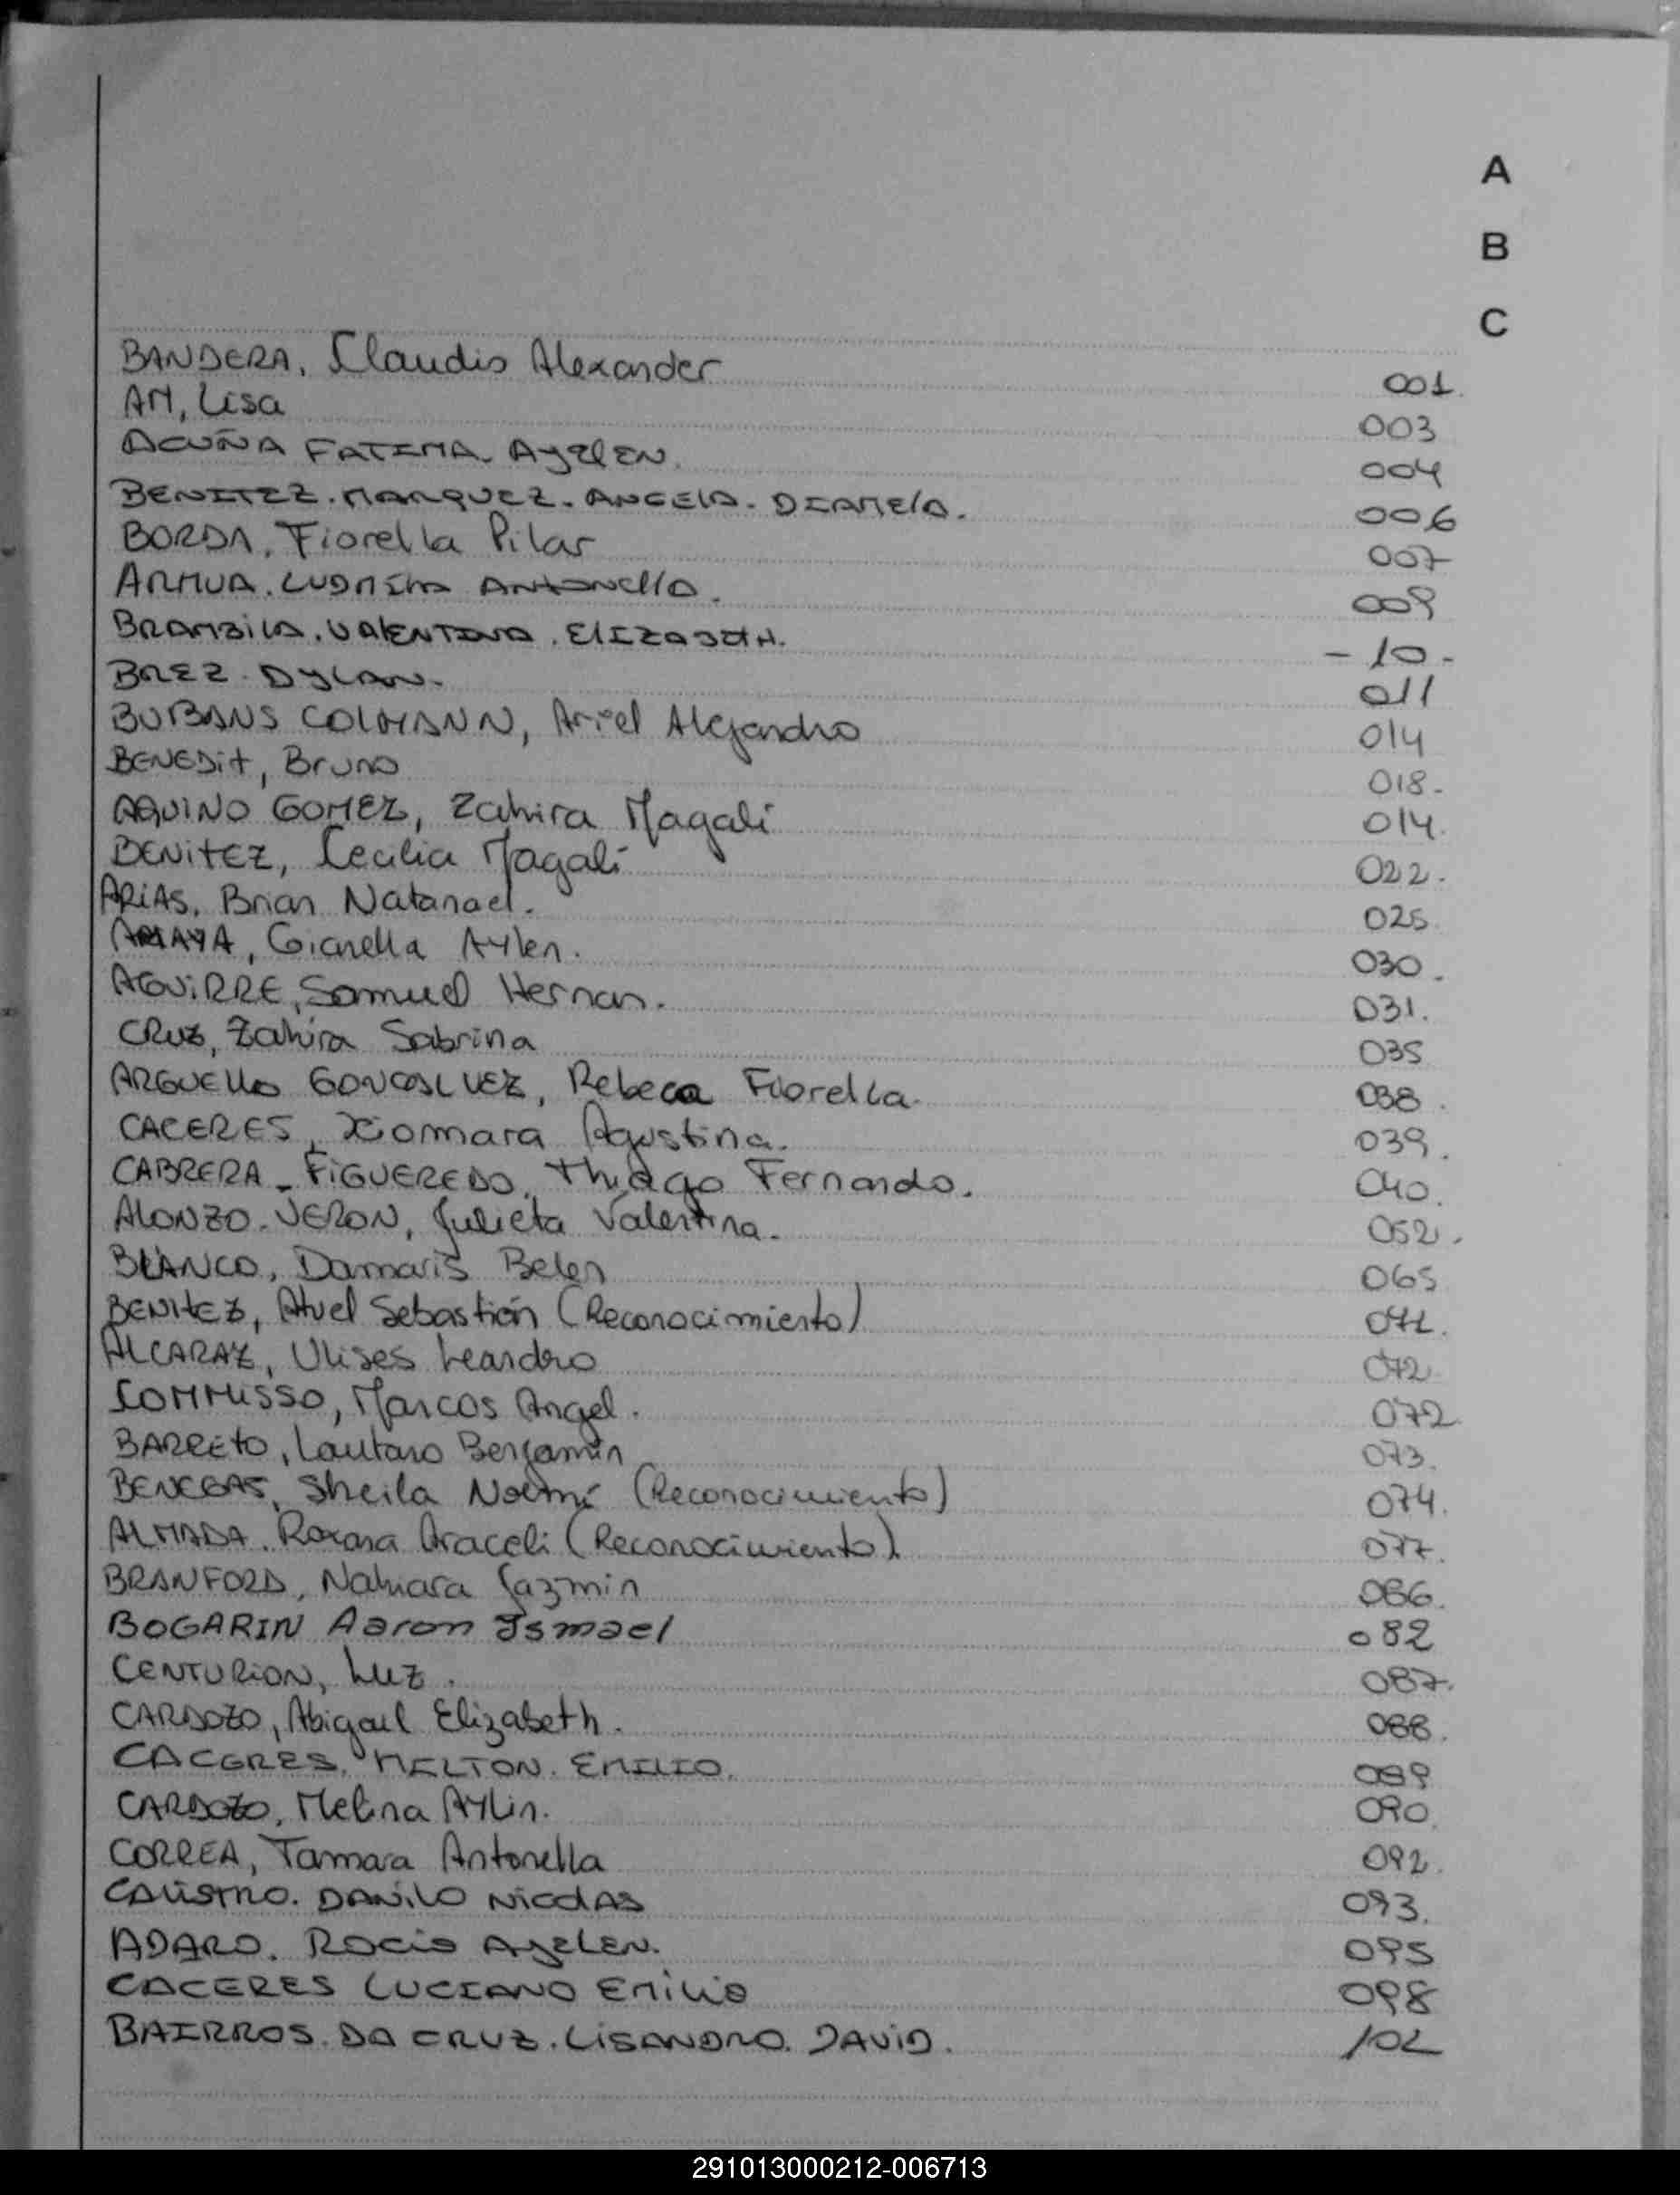 A
B
C
BANDERA, Claudio Alexander 001.
AM, Lisa 003
ACUÑA FATIMA. AyElEN. 004
BENITEZ. MARQUEZ. ANGELA. DIAMELA. 006
BORDA, Fiorella Pilar 007
ARMUA. LUDMILA ANTONELLA. 009
BRAMBILA. VALENTINA. ELIZABETH. - 10 -
BAEZ. DYLAN. 011
BUBANS COLMANN, Ariel Alejandro 014
BENEDIT, Bruno 018.
AQUINO GOMEZ, Zahira Magali 014.
BENITEZ, Cecilia Magali 022.
ARIAS, Brian Natanael. 025.
AMAYA, Gianella Aylen. 030.
AGUIRRE, Samuel Hernan. 031.
CRUZ, Zahira Sabrina 035
ARGUELLO GONCASLVEZ, Rebeca Fiorella. 038.
CACERES, Xiomara Agustina. 039.
CABRERA - FIGUEREDO, Thiago Fernando. 040.
ALONZO - VERON, Julieta Valentina. 052.
BLANCO, Damaris Belen 065
BENITEZ, Atuel Sebastián (Reconocimiento) 071.
ALCARAZ, Ulises Leandro 072
COMMISSO, Marcos Angel. 072.
BARRETO, Lautaro Benjamin 073.
BENEGAS, Sheila Noemí (Reconocimiento) 074.
ALMADA. Roxana Araceli (Reconocimiento) 077.
BRANFORD, Nahiara Jazmin 086.
BOGARIN Aaron Ismael 082
CENTURION, Luz. 087.
CARDOZO, Abigail Elizabeth. 088.
CACERES. MILTON. EMILIO. 089
CARDOZO, Melina Aylin. 090.
CORREA, Tamara Antonella 092.
CALISTRO. DANILO NICOLAS 093.
ADARO. ROCIO AyELEN. 095
CACERES LUCIANO EMILIO 098
BAIRROS. DA CRUZ. LISANDRO. DAVID. 102
291013000212-006713